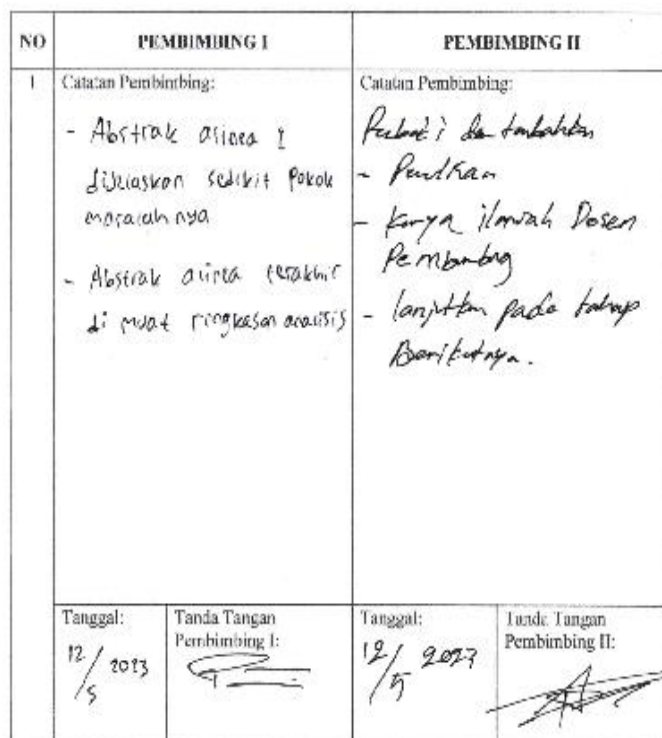 NO
PEMBIMBING I
PEMBIMBING II
1
Catatan Pembimbing:
- Abstrak alinea I
dijelaskan sedikit Pokok
masalah nya
- Abstrak alinea terakhir
di muat ringkasan analisis
Catatan Pembimbing:
Perbaiki dan tambahkan
- Penulisan
- Karya ilmiah Dosen
Pembimbing
- lanjutkan pada tahap
Berikutnya.
Tanggal:
12/5 2023
Tanda Tangan
Pembimbing I:
Tanggal:
12/5 2023
Tanda Tangan
Pembimbing II: